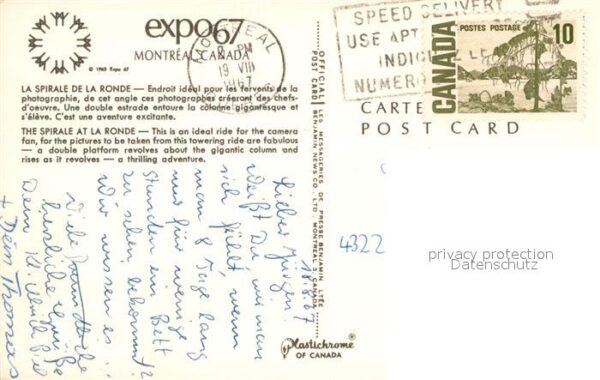 expo67
MONTRÉAL, CANADA
© 1963 Expo 67
LA SPIRALE DE LA RONDE — Endroit idéal pour les fervents de la
photographie, de cet angle ces photographes créeront des chefs-
d'oeuvre. Une double estrade entoure la colonne gigantesque et
s'élève. C'est une aventure excitante.
THE SPIRALE AT LA RONDE — This is an ideal ride for the camera
fan, for the pictures to be taken from this towering ride are fabulous
— a double platform revolves about the gigantic column and
rises as it revolves — a thrilling adventure.
MONTREAL
PM
19 VIII
1967
SPEED DELIVERY
USE APT
INDI
NUMERO
CANADA
POSTES POSTAGE
10
CARTE
POST CARD
OFFICIAL POST CARD
LES MESSAGERIES DE PRESSE BENJAMIN LTÉE
BENJAMIN NEWS CO. LTD. MONTREAL 3, CANADA
18.8.67
Lieber Jürgen!
Weißt Du wie man
sich fühlt, wenn
man 8 Tage lang
nur für wenige
Stunden ein Bett
zu sehen bekommt?
Wir wissen es!
Viele
herzliche Grüße
Dein
+ Dein Thomas
4322
privacy protection
Datenschutz
Plastichrome®
OF CANADA